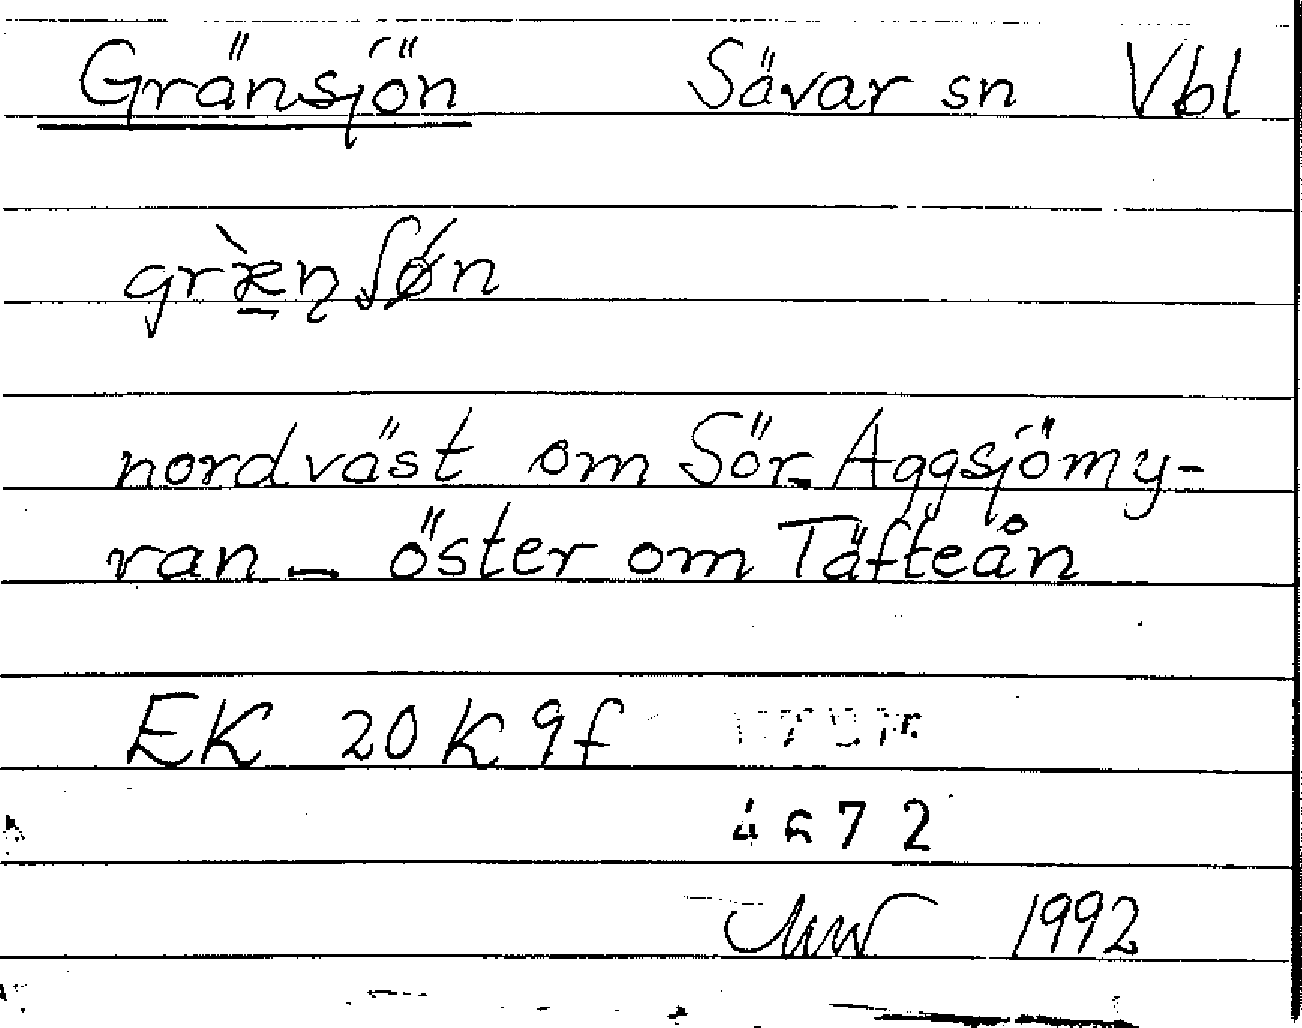 Gränsjön Sävar sn Vbl
nordväst om Sör-Aggsjömy-
ran – öster om Täfteån
EK 20 K 9f
1992